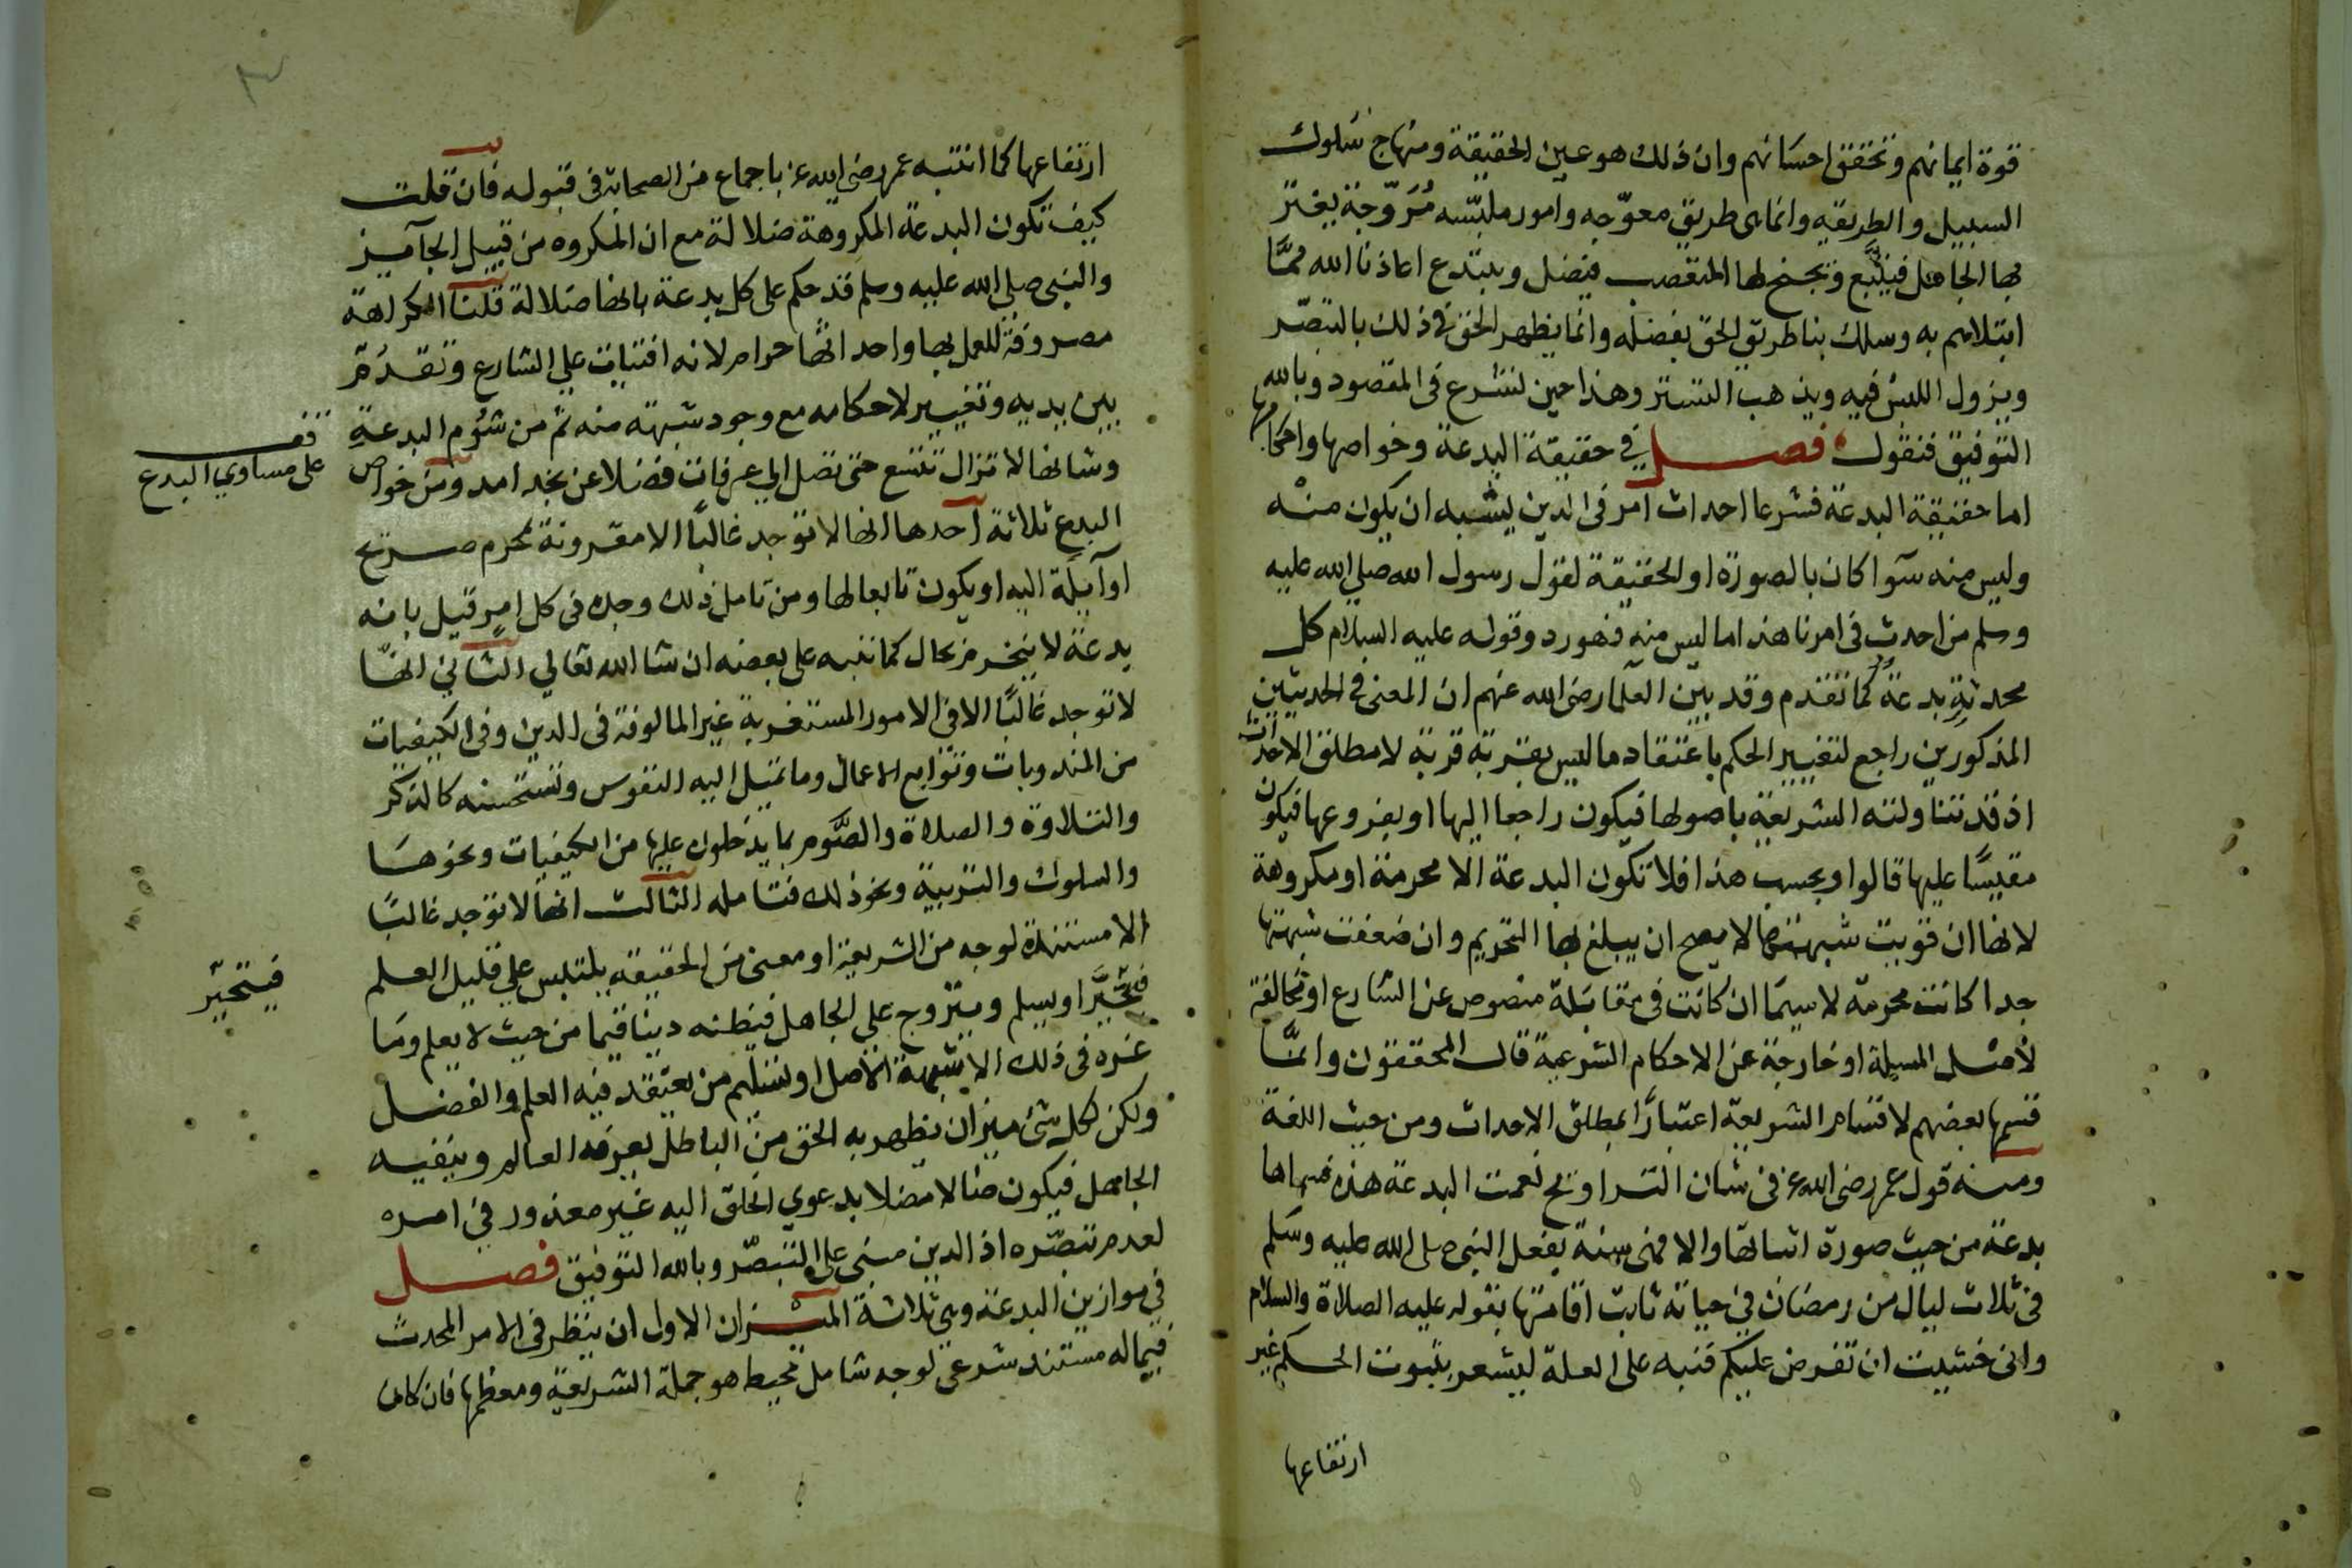 قوة ايمانهم وتحقق احسانهم وان ذلك هو عين الحقيقة ومنهاج سلوك
السبيل والطريقه وانما هى طريق معوّجه وامور ملبّسه مُرَوّجة يغترّ
بها الجاهل فيتبع ويجنح لها المتعصب فيضل ويبتدع اعاذنا الله ممّا
ابتلاهم به وسلك بنا طريق الحق بفضله وانما يظهر الحق فى ذلك بالتبصّر
ويزول اللبس فيه ويذهب التستر وهذا حين نشرع فى المقصود وبالله
التوفيق فنقول فصل في حقيقة البدعة وخواصها واحكامها
اما حقيقة البدعة فشرعا احداث امر فى الدين يشبه ان يكون منه
وليس منه سوا كان بالصورة او الحقيقة لقول رسول الله صلي الله عليه
وسلم من احدث فى امرنا هذا ما ليس منه فهو رد وقوله عليه السلام كل
محدثة بدعة كما تقدم وقد بين العلما رضى الله عنهم ان المعنى فى الحديثين
المذكورين راجع لتغيير الحكم باعتقاد ما ليس بقربة قربة لا مطلق الاحداث
اذ قد تتناولته الشريعة باصولها فيكون راجعا اليها او بفروعها فيكون
مقيسًا عليها قالوا وبحسب هذا فلا تكون البدعة الا محرمة او مكروهة
لانها ان قويت شبهتها لا يصح ان يبلغ بها التحريم وان ضعفت شبهتها
جدا كانت محرمة لا سيما ان كانت فى مقابلة منصوص عن الشارع او مخالفة
لأصل المسيلة او خارجة عن الاحكام الشرعية قال المحققون وانما
قسمها بعضهم لاقسام الشريعة اعتبارًا بمطلق الاحداث ومن حيث اللغة
ومنه قول عمر رضى الله عنه فى شان التراويح نعمت البدعة هذه فسماها
بدعة من حيث صورة اتيانها والا فهى سنة بفعل النبى صلى الله عليه وسلم
فى ثلاث ليال من رمضان في حياته ثابت اقامتها بقوله عليه الصلاة والسلام
وانى خشيت ان تفرض عليكم فنبه على العلة ليشعر بثبوت الحكم غير
ارتفاعها
ارتفاعها كما انتبه عمر رضى الله عنه باجماع من الصحابة فى قبوله فان قلت
كيف تكون البدعة المكروهة ضلالة مع ان المكروه من قبيل الجآيز
والنبى صلي الله عليه وسلم قد حكم على كل بدعة بانها ضلالة قلنا الكراهة
مصروفة للعمل بها واحداثها حرام لانه افتيات علي الشارع وتقدم
بين يديه وتغيير لاحكامه مع وجود شبهة منه ثم من شؤم البدعة
وشانها لا تزال تتسع حتى تصل الي عرفات فضلا عن نجد امد ومن خواص
قف
على مساوي البدع
البدع ثلاثة احدها انها لا توجد غالبًا الا مقرونة بمحرم صريح
او آيلة اليه او يكون تابعا لها ومن تامل ذلك وجده فى كل امر قيل بانه
بدعة لا ينخرم بحال كما ننبه على بعضه ان شا الله تعالي الثانى انها
لا توجد غالبًا الا فى الامور المستغربة غير المالوفة فى الدين وفى الكيفيات
من المندوبات وتوابع الاعمال وما تميل اليه النفوس وتستحسنه كالذكر
والتلاوة والصلاة والصوم بما يدخلون عليها من الكيفيات ونحوها
والسلوك والتربية ونحو ذلك فتامله الثالث انها لا توجد غالبًا
الا مستندة لوجه من الشريعة او معنى من الحقيقه يلتبس على قليل العلم
فيتحيّر
فتحيَّر او يسلم ويتروج على الجاهل فيظنه دينا قيما من حيث لا يعلم وما
غره فى ذلك الا شبهة الاصل او تسليم من يعتقد فيه العلم والفضل
ولكن لكل شئ ميزان يظهر به الحق من الباطل يعرفه العالم وينفيه
الجاهل فيكون ضالا مضلا بدعوي الخلق اليه غير معذور في امره
لعدم تبصّره اذ الدين مبنى على التبصّر وبالله التوفيق فصل
في موازين البدعة وهى ثلاثة الميزان الاول ان ينظر فى الامر المحدث
فيما له مستند شرعى لوجه شامل محيط هو جملة الشريعة ومعظمها فان كان